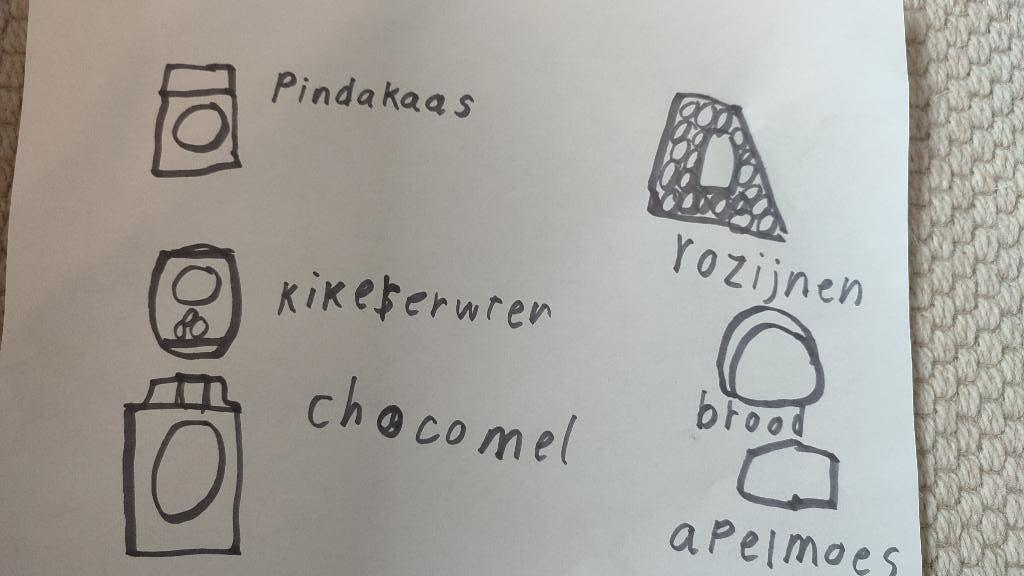 Pindakaas
kikererwten
chocomel
rozijnen
brood
apelmoes